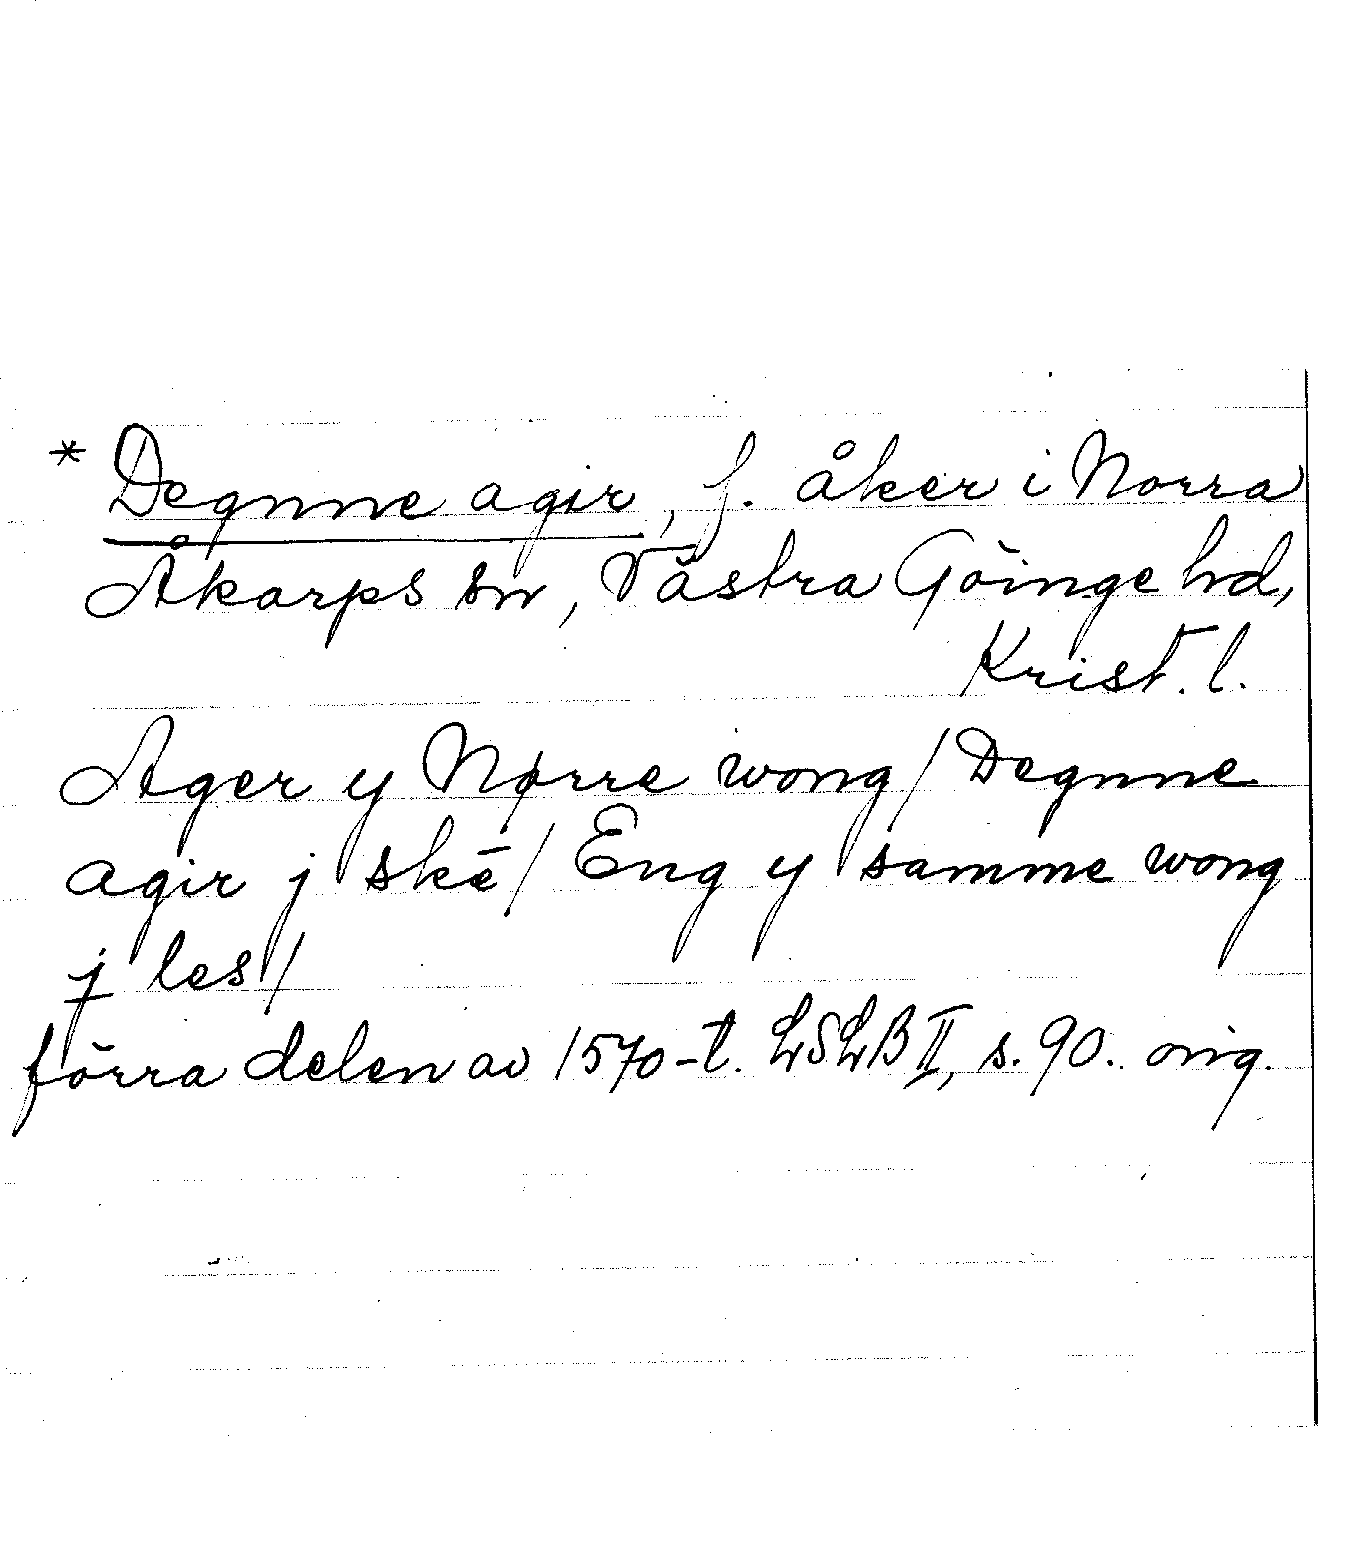 * Degnne agir, f. åker i Norra
Åkarps sn, Västra Göinge hd,
Krist. l.
Ager y Nørre wong/ Degnne
agir j skē/ Eng y samme wong
j les/
förra delen av 1570-t. LSLB II, s. 90. orig.